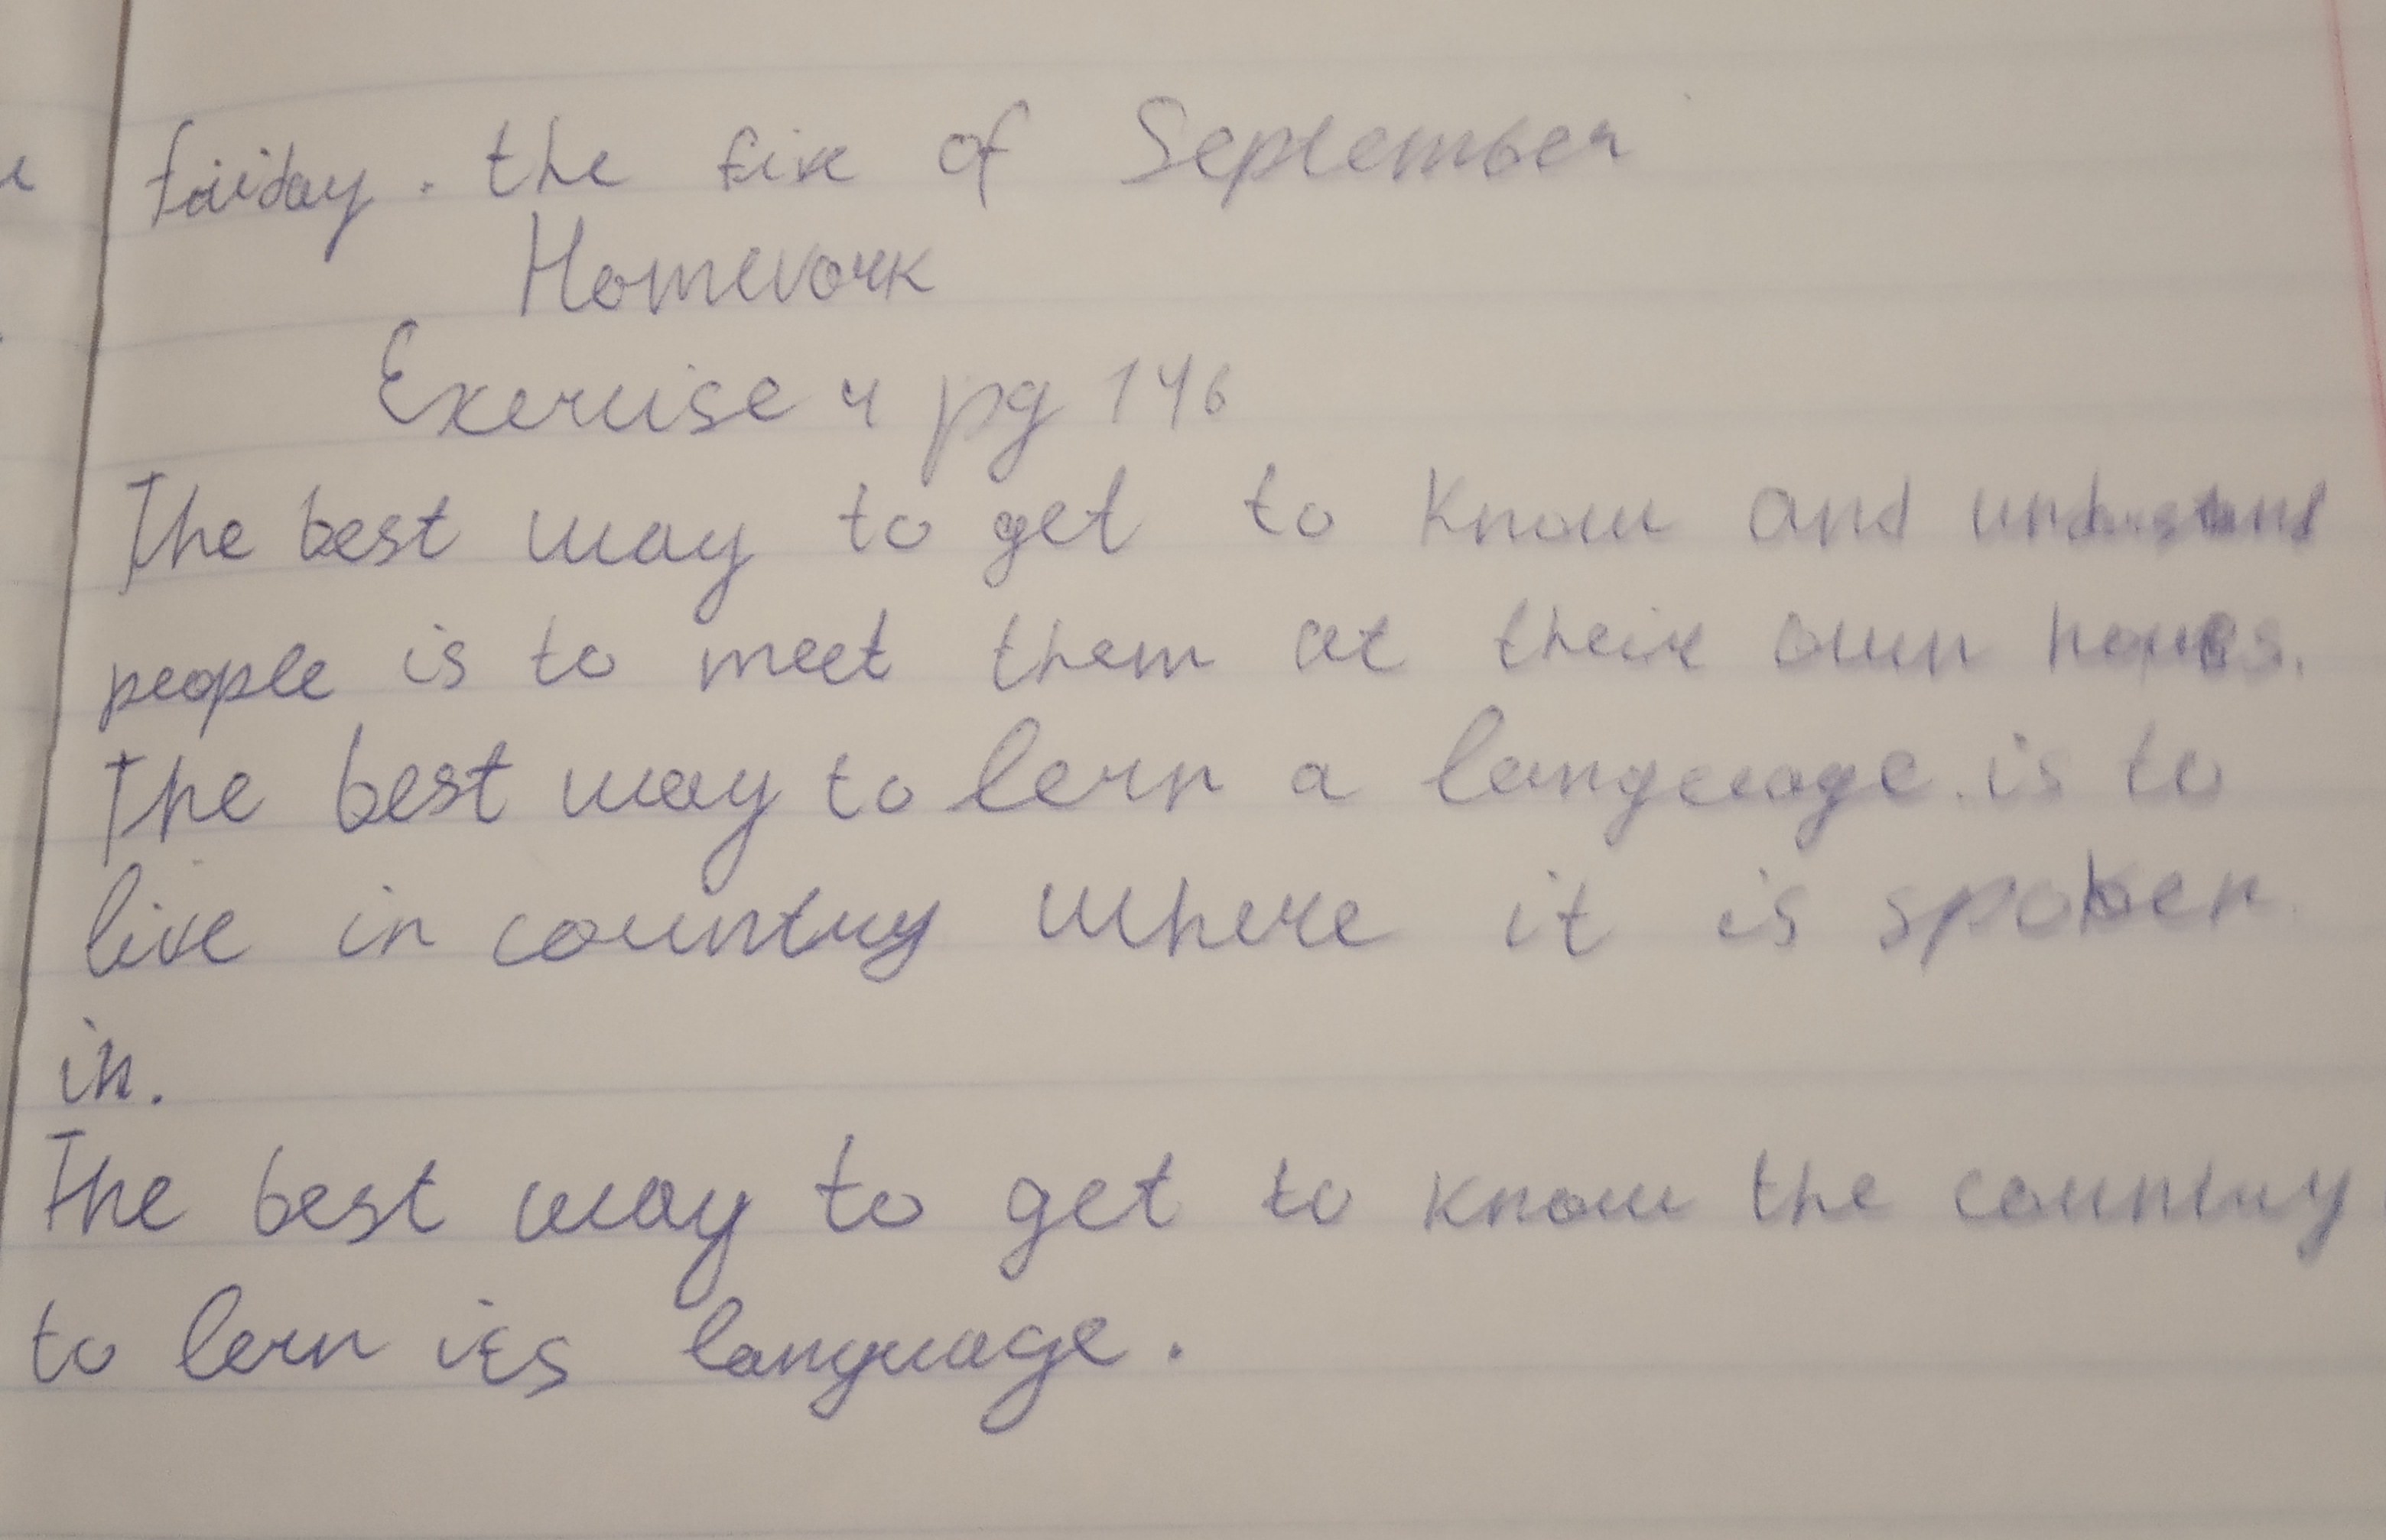 friday. the five of September
Homework
Exercise 4 pg 146
The best way to get to know and understand
people is to meet them at their own homes.
The best way to lern a language is to
live in country where it is spoken
in.
The best way to get to know the country
to lern its language.